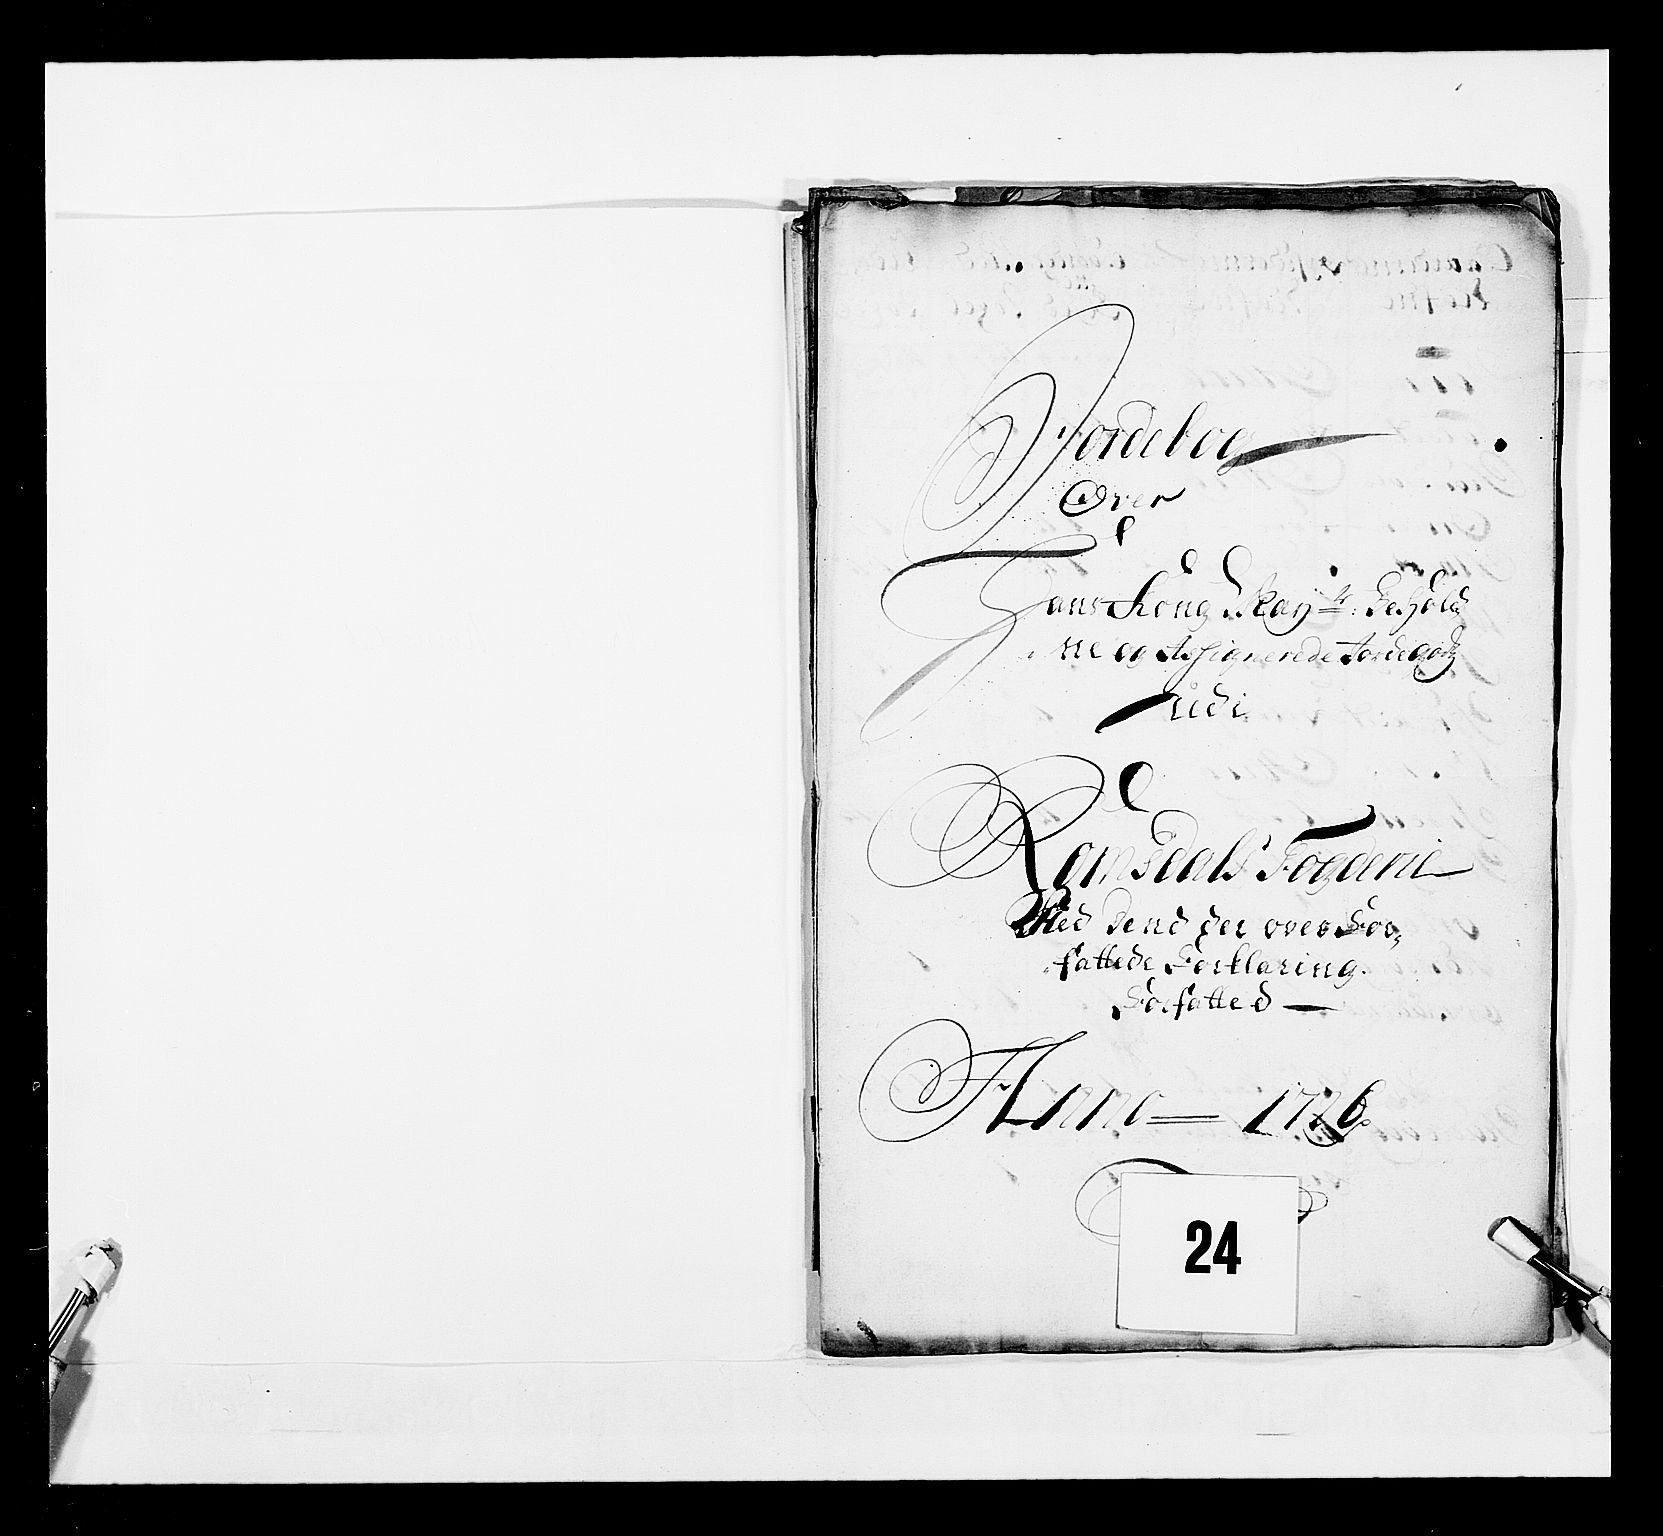 Jordebog
Over
Hans Kong May:ts: Behold=
ne og Assignerede Jordegodtz
udi
Romsdals Fogderie
Med dend der over For=
fattede Forklaring.
Forfatted
Anno 1726.
24